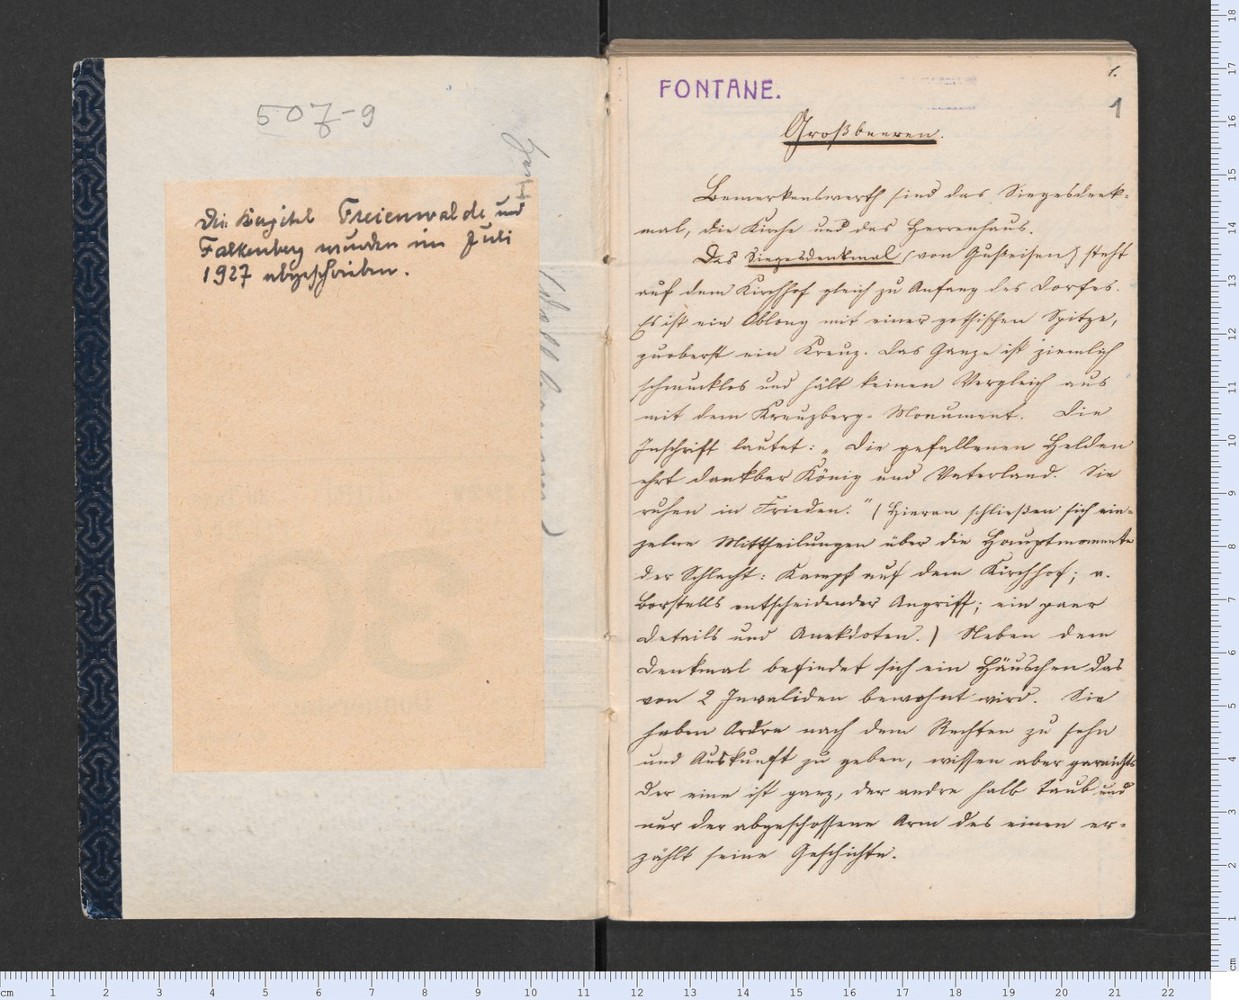 507-9
Die Kapitel Freienwalde und
Falkenberg wurden im Juli
1927 abgeschrieben.
FONTANE.
1.
1
Großbeeren.
Bemerkenswerth sind das Siegesdenk-
mal, die Kirche und das Herrenhaus.
Das Siegesdenkmal (von Gußeisen) steht
auf dem Kirchhof gleich zu Anfang des Dorfes.
Es ist ein Oblong mit einer gothischen Spitze,
zuoberst ein Kreuz. Das Ganze ist ziemlich
schmucklos und hält keinen Vergleich aus
mit dem Kreuzberg-Monument. Die
Inschrift lautet: „Die gefallenen Helden
ehrt dankbar König und Vaterland. Sie
ruhen in Frieden." (Hieran schließen sich ein-
zelne Mittheilungen über die Hauptmomente
der Schlacht: Kampf auf dem Kirchhof; v.
Borstells entscheidender Angriff; ein paar
Details und Anekdoten.) Neben dem
Denkmal befindet sich ein Häuschen das
von 2 Invaliden bewohnt wird. Sie
haben Ordre nach dem Rechten zu sehn
und Auskunft zu geben, wissen aber garnichts
der eine ist ganz, der andre halb taub und
nur der abgeschossene Arm des einen er-
zählt seine Geschichte.